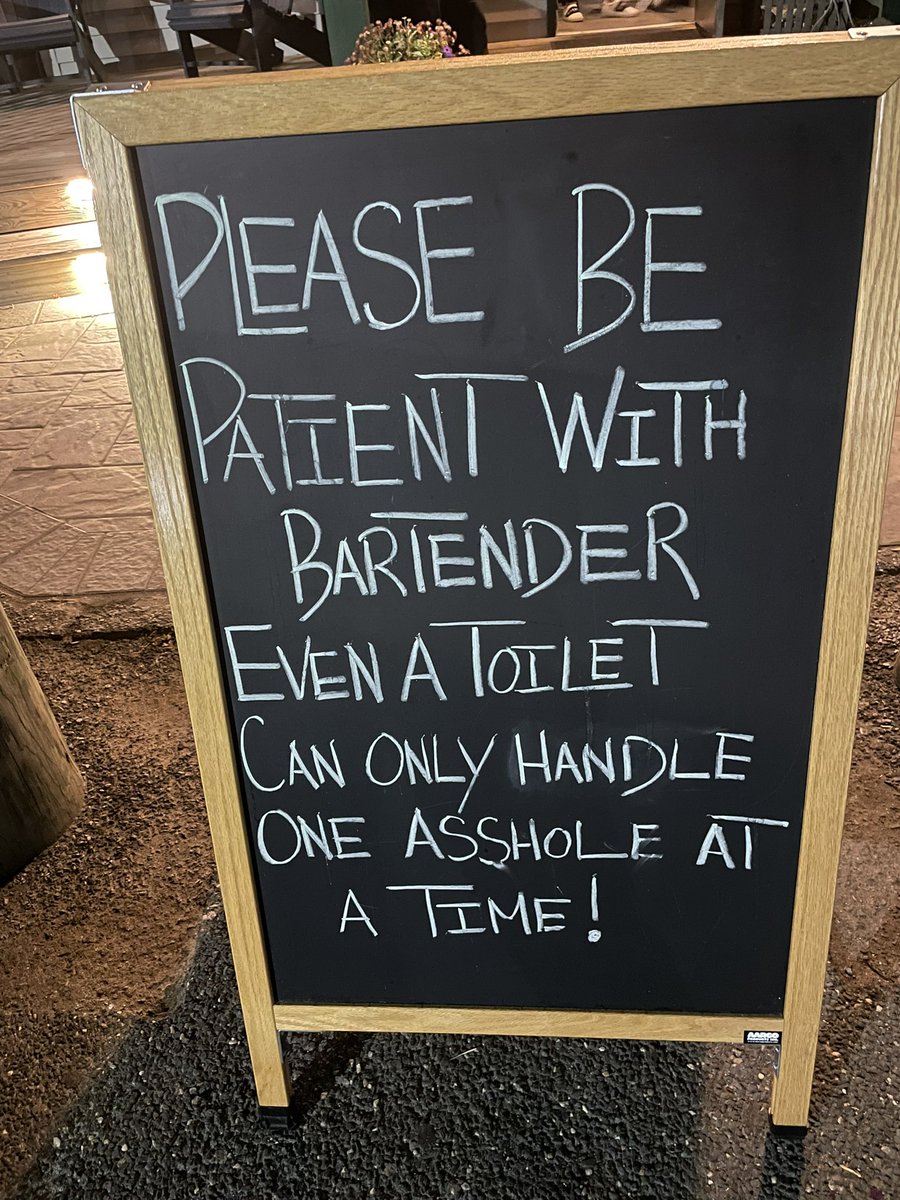 PLEASE BE
PATIENT WITH
BARTENDER
EVEN A TOILET
CAN ONLY HANDLE
ONE ASSHOLE AT
A TIME!
AARCO